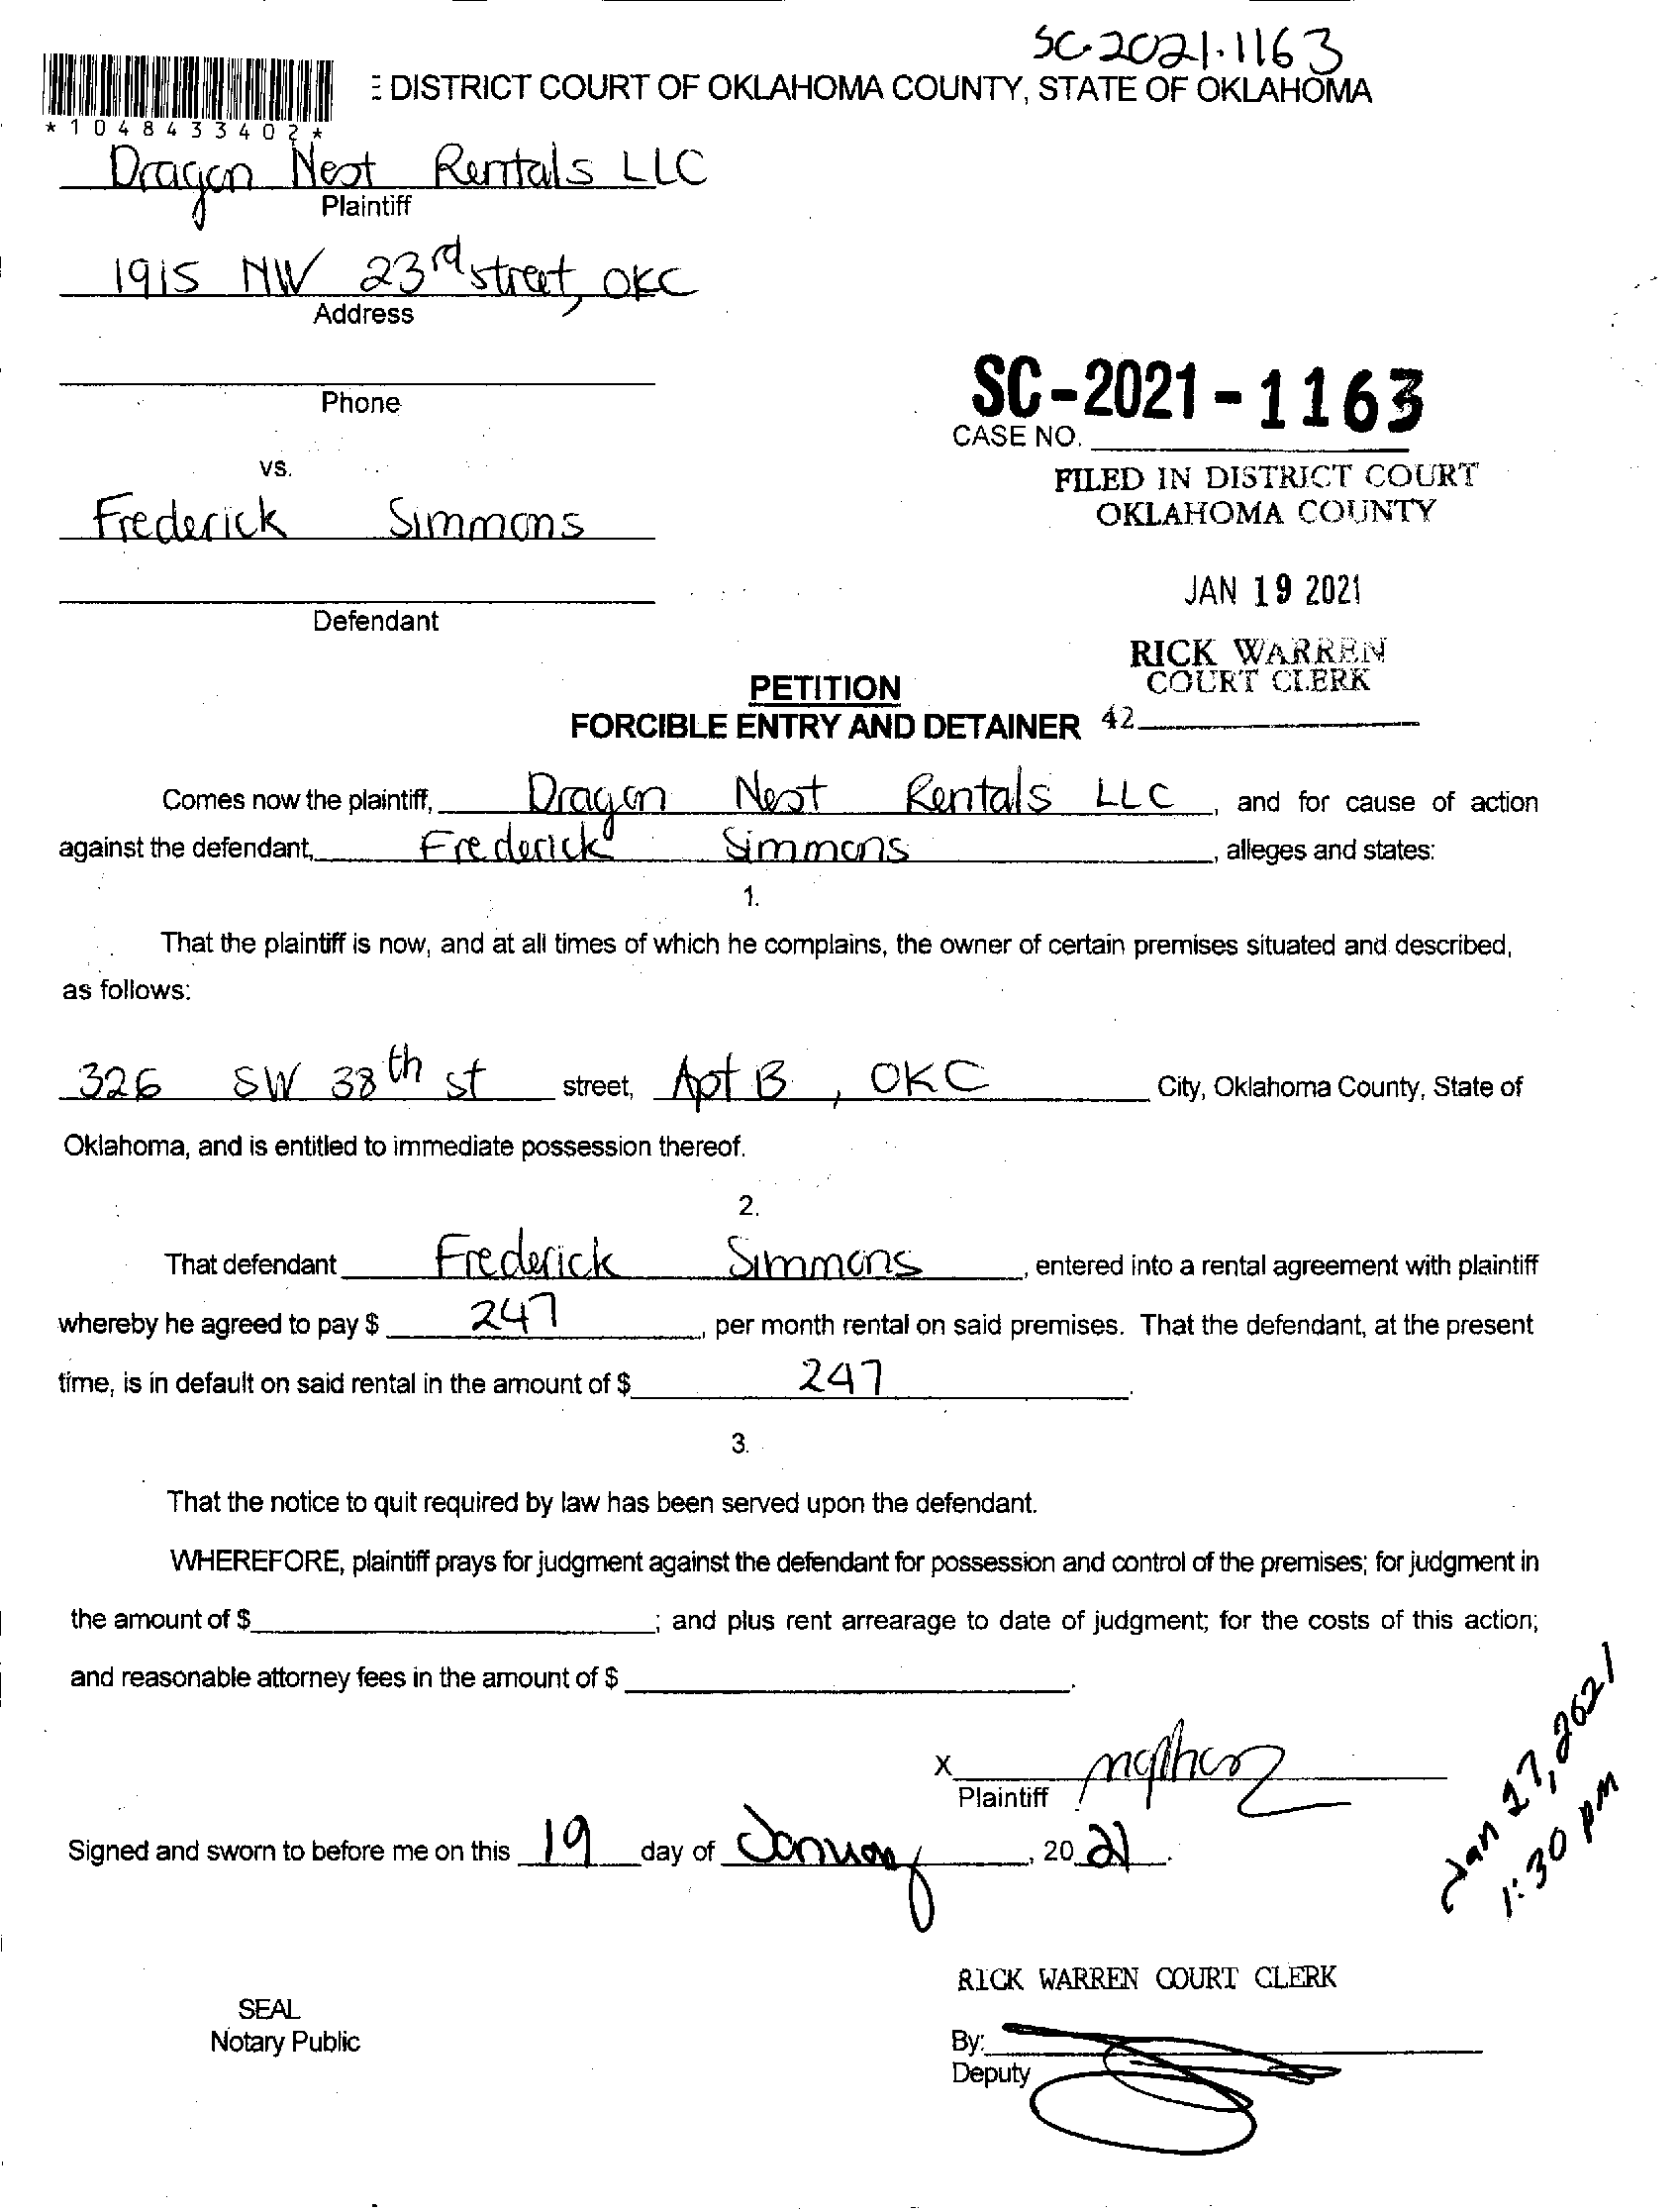 SC-2021-1163
DISTRICT COURT OF OKLAHOMA COUNTY, STATE OF OKLAHOMA
*1048433402*
Dragon Nest Rentals LLC
Plaintiff
1915 NW 23rd street, OKC
Address
Phone
SC-2021-1163
CASE NO.
vs.
FILED IN DISTRICT COURT
OKLAHOMA COUNTY
Frederick Simmons
JAN 19 2021
Defendant
RICK WARREN
COURT CLERK
PETITION
FORCIBLE ENTRY AND DETAINER 42
Comes now the plaintiff, Dragon Nest Rentals LLC, and for cause of action
against the defendant, Frederick Simmons, alleges and states:
1.
That the plaintiff is now, and at all times of which he complains, the owner of certain premises situated and described,
as follows:
326 SW 38th st street, Apt B, OKC City, Oklahoma County, State of
Oklahoma, and is entitled to immediate possession thereof.
2.
That defendant Frederick Simmons, entered into a rental agreement with plaintiff
whereby he agreed to pay $ 247, per month rental on said premises. That the defendant, at the present
time, is in default on said rental in the amount of $ 247.
3.
That the notice to quit required by law has been served upon the defendant.
WHEREFORE, plaintiff prays for judgment against the defendant for possession and control of the premises; for judgment in
the amount of $ ; and plus rent arrearage to date of judgment; for the costs of this action;
and reasonable attorney fees in the amount of $ .
X
Plaintiff
Jan 27, 2021
1:30 PM
Signed and sworn to before me on this 19 day of January, 2021.
RICK WARREN COURT CLERK
SEAL
Notary Public
By:
Deputy